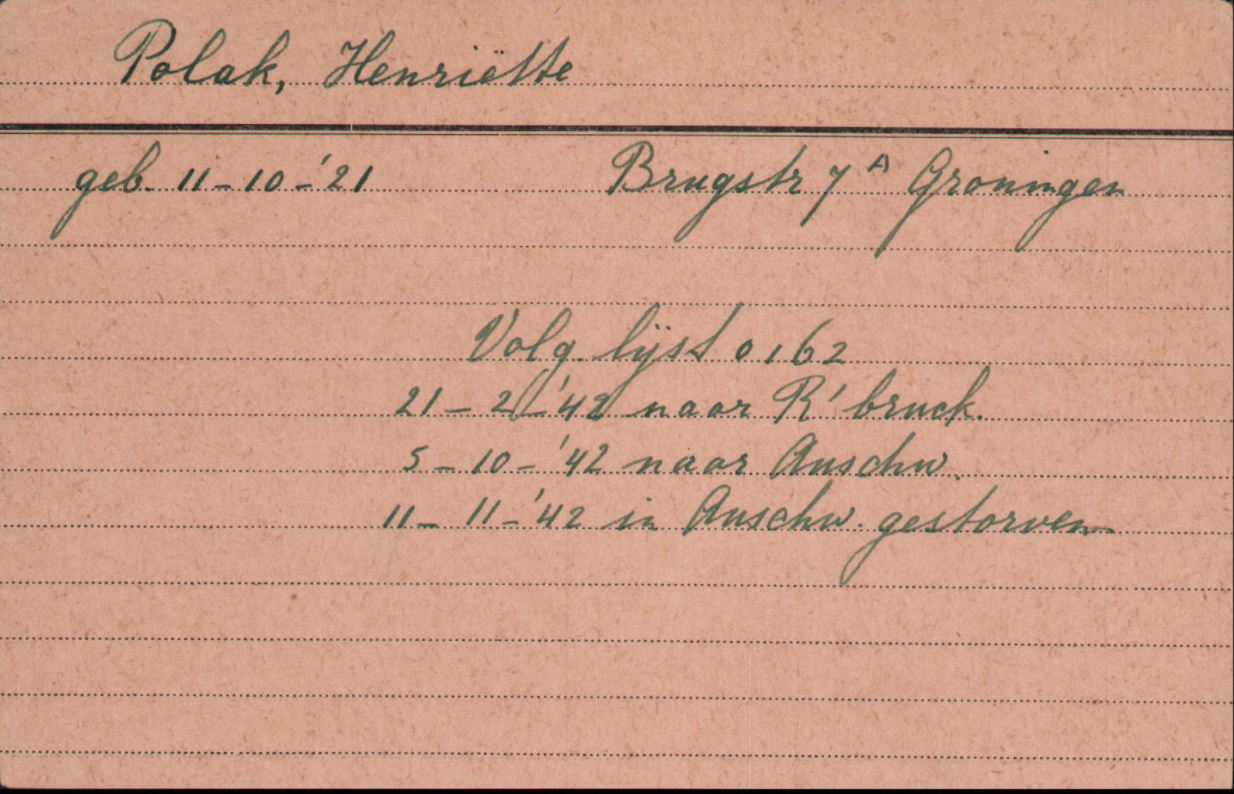 Polak, Henriëtte
geb. 11-10-'21 Brugstr 7A Groningen
Volg. lijst 0162
21-2-'42 naar R'bruck.
5-10-'42 naar Auschw.
11-11-'42 in Auschw. gestorven